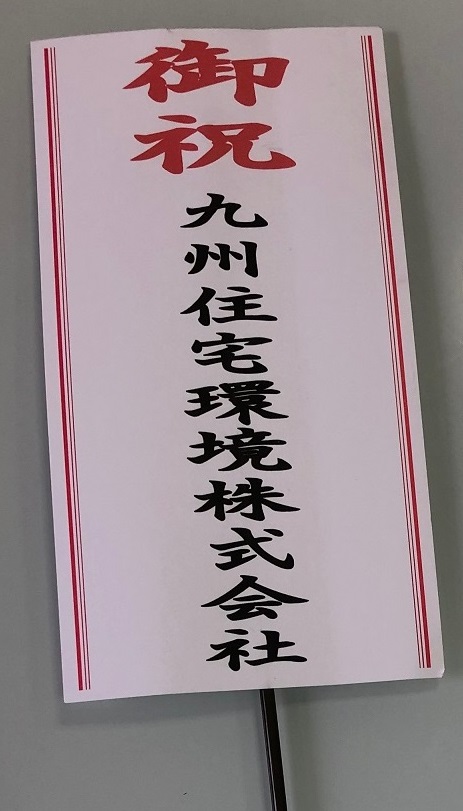 御祝
九州住宅環境株式会社